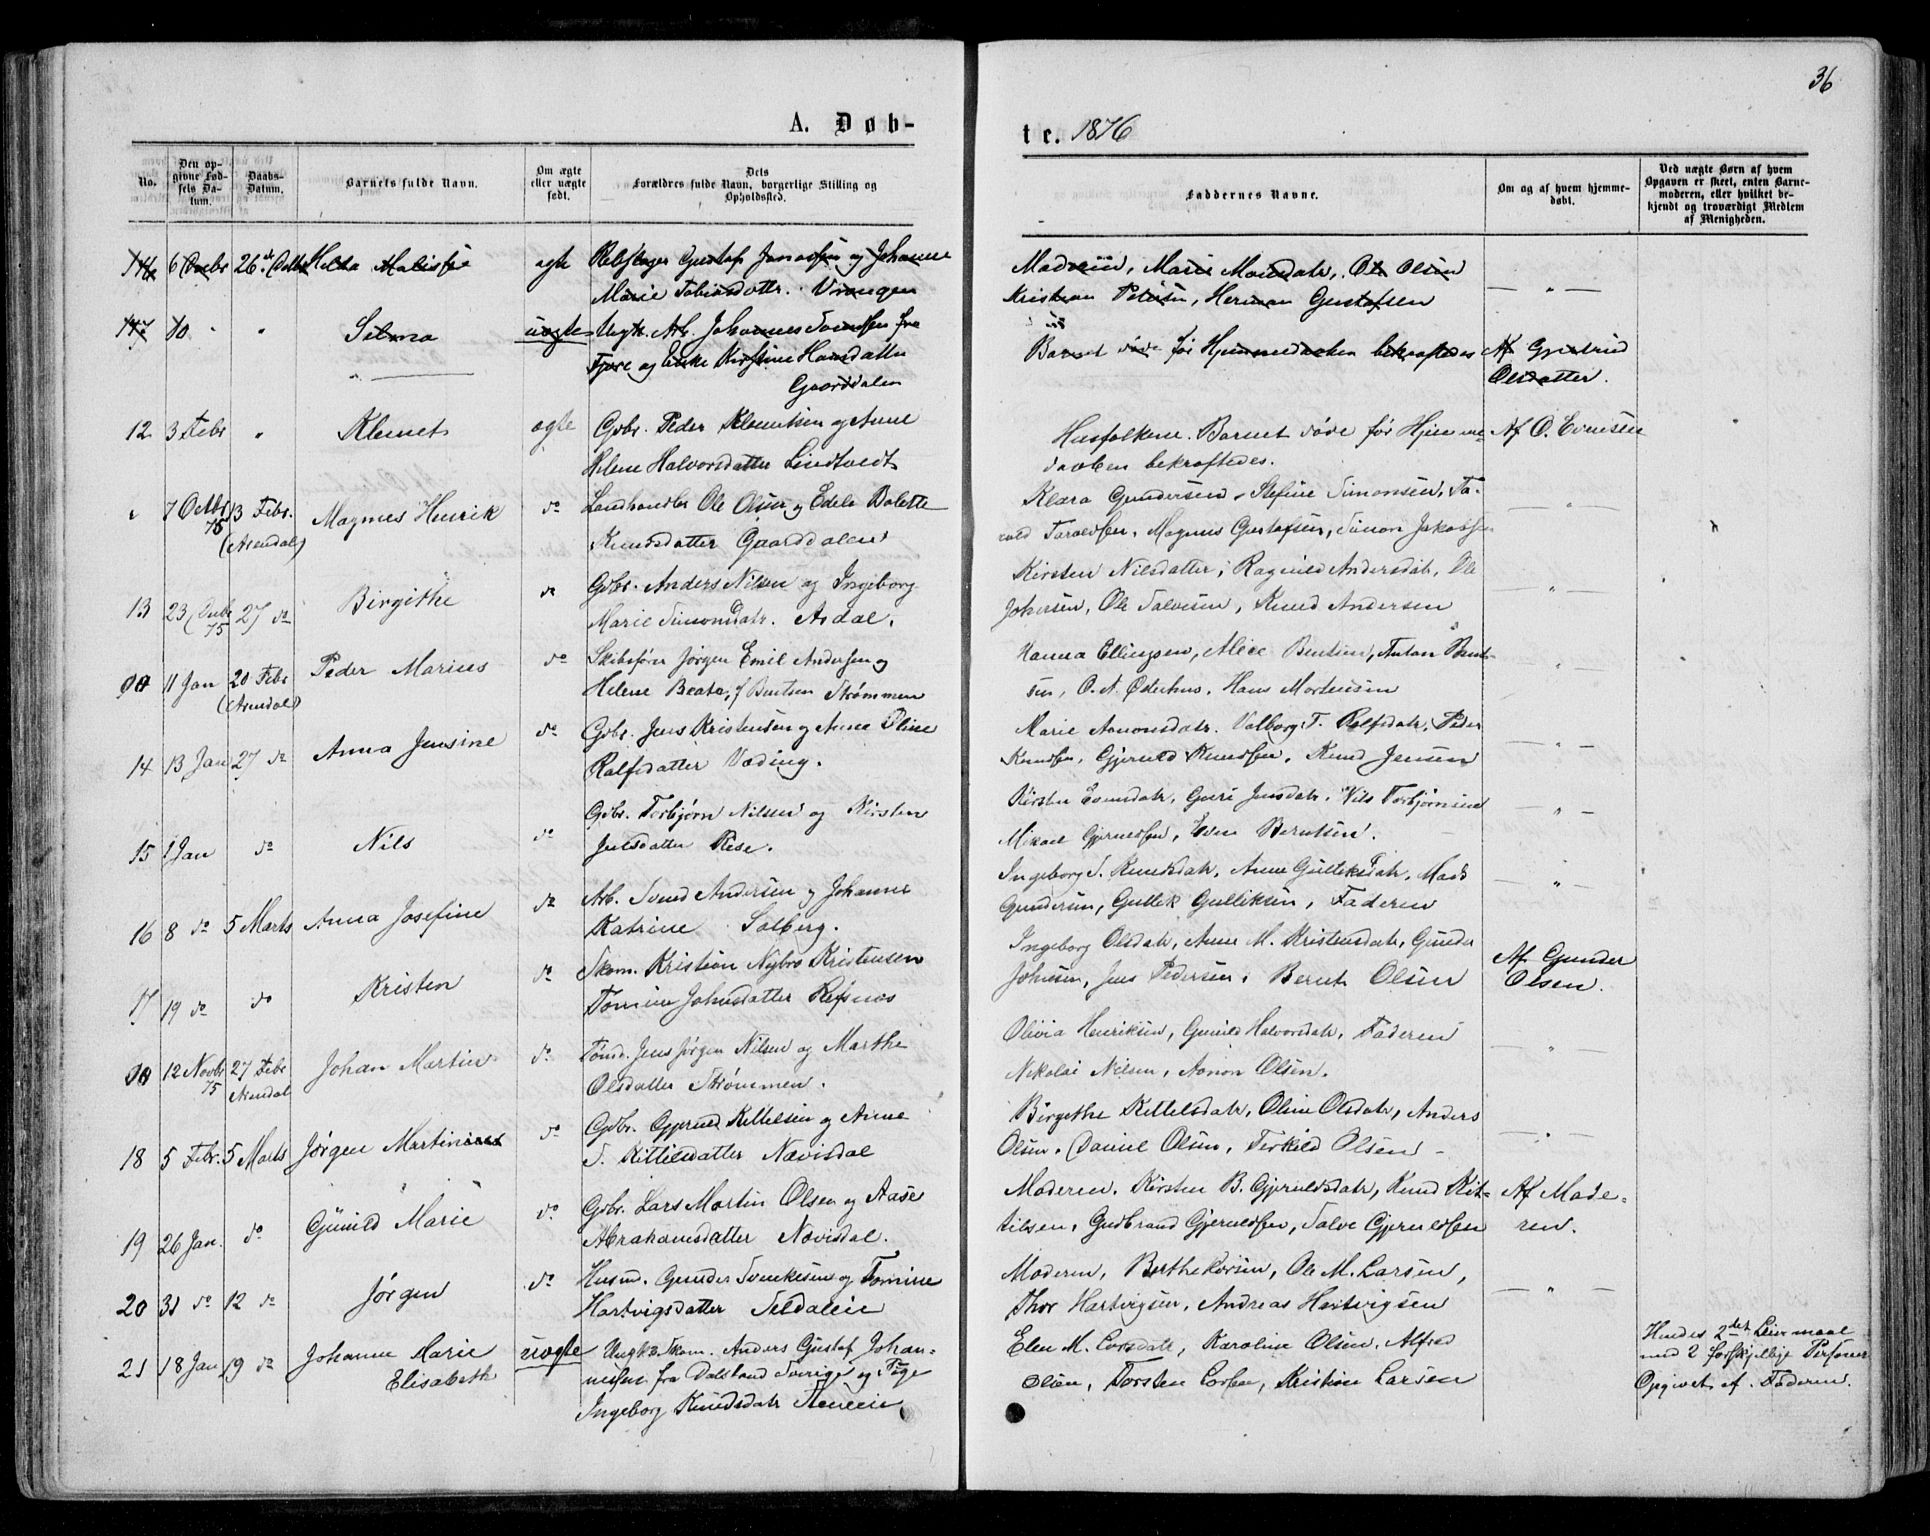 36
A. Døb-
te. 1876
No.
Den op-
givne Fød-
sels Da-
tum.
Daabs-
Datum.
Barnets fulde Navn.
Om ægte
eller uægte
født.
Dets
Forældres fulde Navn, borgerlige Stilling og
Opholdssted.
Faddernes Navne.
Om og af hvem hjemme-
døbt.
Ved uægte Børn af hvem
Opgaven er skeet, enten Barne-
moderen, eller hvilket be-
kjendt og troværdigt Medlem
af Menigheden.
146 6 26 ægte Gustaf Johanne
Marie Tobiasdattr. Vrengen
Marie Ole Olsen
Kristian Petersen, Herman Gustafsen — " —
147 10 " " Selma uægte Ungk. Arb. Johannes fra
og Enke Kirstine Hansdatter
Gaarddalen
Barnet døde før Hjemmedaaben bekræftedes Af
Olsdatter.
12 3 Febr " Klemet ægte Gdbr. Peder Klemetsen og Anne
Helene Halvorsdatter Lindtvedt
Husfolkene. Barnet døde før Hjemme- Af O. Evensen
daaben bekræftedes.
7 Octbr 75 13 Febr. (Arendal) Magnus Henrik do Landhandler Ole Olsen og Edele Bolette
Knudsdatter Gaarddalen
Klara Gundersen, Stefine Simonsen, Ta-
rald Taraldsen, Magnus Gustafsen, Simon Jakobsen — " —
13 23 Decbr 75 27 do Birgithe do Gdbr. Anders Nilsen og Ingeborg
Marie Simonsdatr. Asdal.
Kirsten Nilsdatter, Ragnild Andersdat, Ole
Johnsen, Ole Salvesen, Knud Andersen — " —
11 Jan 20 Febr (Arendal) Peder Marius do Skibsfører Jørgen Emil Andersen og
Helene Beata, f Bentsen Strømmen
Hanna Ellingsen, Alice Bentsen, Anton Bent-
sen, O. A. Østerhus, Hans Mortensen — " —
14 13 Jan 27 do Anna Jensine do Gdbr. Jens Kristensen og Anne Oline
Rolfsdatter Væding.
Marie Aanonsdatr. Valborg T. Rolfsdatr, Peder
Knudsen, Gjeruld Knudsen, Knud Jensen — " —
15 1 Jan do Nils do Gdbr. Torbjørn Nilsen og Kirsten
Julsdatter Rise.
Kirsten Evensdatr, Guri Jensdatr, Nils Torbjørnsen
Mikael Gjeruldsen, Even Berntsen. — " —
16 8 do 5 Marts Anna Josefine do Arb. Svend Andersen og Johanne
Katrine Solberg.
Ingeborg S. Knudsdatr, Anne Gulleksdatr, Mads
Gundersen, Gullek Gulliksen, Faderen — " —
17 19 do do Kristen do Skom. Kristian Nybro Kristensen
Tomine Johnsdatter Refsnæs
Ingeborg Olsdatr, Anne M. Kristensdatr, Gunder
Johnsen, Jens Pedersen, Bernt Olsen Af Gunder
Olsen.
12 Novbr 75 27 Febr Arendal Johan Martin do Tømd. Jens Jørgen Nilsen og Marthe
Olsdatter Strømmen.
Olivia Henriksen, Gunild Halvorsdatr, Faderen
Nikolai Nilsen, Aanon Olsen. — " —
18 5 Febr. 5 Marts Jørgen Martinius do Gdbr. Gjeruld Kittelsen og Anne
S. Kittilsdatter Nævisdal
Birgithe Kittelsdatr, Oline Olsdatr, Anders
Olsen, Daniel Olsen, Terkild Olsen — " —
19 26 Jan. do Gunild Marie do Gdbr. Lars Martin Olsen og Aase
Abrahamsdatter Nævisdal.
Moderen, Kirsten B. Gjeruldsdatr, Knud Kit-
tilsen, Gudbrand Gjeruldsen, Salve Gjeruldsen Af Mode-
ren.
20 31 do 12 do Jørgen do Husmd. Gunder Svenkesen og Tomine
Hartvigsdatter Seldalen
Moderen, Berthe Larsen, Ole M. Larsen,
Thor Hartvigsen, Andreas Hartvigsen — " —
21 18 Jan 19 do Johanne Marie
Elisabeth uægte Ungk. Skom. Anders Gustaf Johan-
nesen fra Dalsland Sverige og Pige
Ingeborg Knudsdatr
Elen M. Larsdatr, Karoline Olsen, Alfred
Olsen, Torsten Larsen, Kristine Larsen
Hendes 2det Leiermaal
med 2 forskjellige Personer
Opgivet af Faderen.